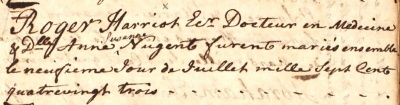 Roger Harriot Ecr. Docteur en Medecine
Susanne
& Dlle Anne Nugent furent mariés ensemble
le neufieme Jour de Juillet mille Sept Cents
quatrevingt trois